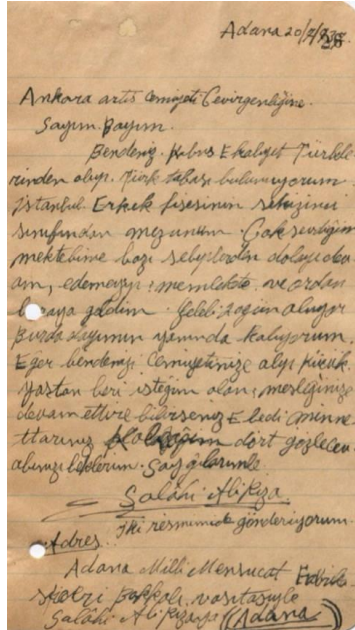 Adana 20/2/938
Ankara artis Cemiyeti Çevirgenliğine.
Sayın Bayım.
Bendeniz. Kıbrıs Ekaliyet Türkle
rinden olup. Türk tabası bulunuyorum
İstanbul Erkek lisesinin sekizinci
sınıfından mezunum. Çok sevdiğim
mektebime bazı sebeplerden dolayı dev
am, edemeyip memlekete, ve ordan
buraya geldim. Geleli 20 gün oluyor
Burda dayımın yanında kalıyorum.
Eğer bendenizi Cemiyetinize alıp küçük
yaştan beri isteğim olan, mesleğinize
devam ettire bilirseniz Ebedi minne
ttarınız kalacağım dört gözle cev
abınızı beklerim. Saygılarımla
Salâhi Ali Rıza
İki resmimide gönderiyorum.
Adres.
Adana Milli Mensucat Fabrik
bakkalı vasıtasıyle
Salâhi Ali Rızaya ((Adana))